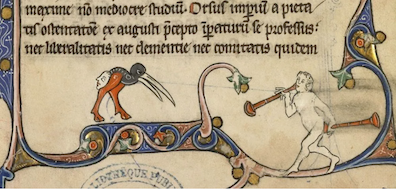 maxime nō mediocre studiū. Orsus imp̄iū a pieta
tis ostentatōne ex augusti p̄cepto īpaturū se professus:
nec liberalitatis nec clementie nec comitatis quidem
BLIOTHÈQUE PUBLI